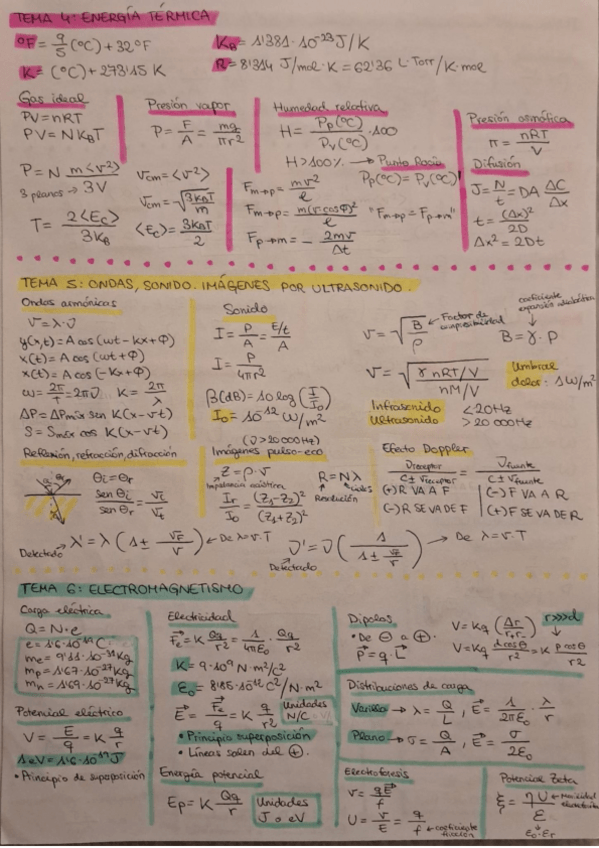 TEMA 4: ENERGÍA TÉRMICA
°F = 9/5 (°C) + 32°F
K = (°C) + 273'15 K
K_B = 1'381·10^-23 J/K
R = 8'314 J/mol·K = 62'36 L·Torr/K·mol
Gas ideal
PV = nRT
PV = N K_B T
P = N m<v²>/3V
3 planos
T = 2<Ec>/3K_B
Presión vapor
P = F/A = mg/πr²
v_cm = <v²>
v_cm = √(3K_BT/m)
<Ec> = 3K_BT/2
Humedad relativa
H = Pp(°C)/Pv(°C) · 100
H > 100% → Punto Rocío
Pp(°C) = Pv(°C)
F m→p = mv²/ℓ
F m→p = m(v cos Φ)²/ℓ
"F m→p = F p→m"
F p→m = - 2mv/Δt
Presión osmótica
π = nRT/V
Difusión
J = N/t = DA ΔC/Δx
t = (Δx)²/2D
Δx² = 2Dt
TEMA 5: ONDAS, SONIDO. IMÁGENES POR ULTRASONIDO.
Ondas armónicas
v = λ·ν
y(x,t) = A cos (ωt - kx + Φ)
x(t) = A cos (ωt + Φ)
x(t) = A cos (-kx + Φ)
ω = 2π/T = 2πν K = 2π/λ
ΔP = ΔPmáx sen K(x - vt)
S = Smáx cos K(x - vt)
Sonido
I = P/A = E/t/A
I = P/4πr²
β(dB) = 10 log (I/I₀)
I₀ = 10^-12 W/m²
v = √(B/ρ) ← Factor de compresibilidad
coeficiente expansión adiabática
B = γ·P
v = √(γ nRT/V / nM/V)
Umbral dolor: 1W/m²
Infrasonido < 20Hz
Ultrasonido > 20 000Hz
Reflexión, refracción, difracción
θi = θr
sen θi / sen θr = vi/vt
(ν > 20 000Hz)
Imágenes pulso-eco
Z = ρ·v
Impedancia acústica
R = Nλ
ciclos
Resolución
Ir/I₀ = (Z₁-Z₂)²/(Z₁+Z₂)²
Efecto Doppler
ν receptor / C ± v receptor = ν fuente / C ± v fuente
(+) R VA A F
(-) F VA A R
(-) R SE VA DE F
(+) F SE VA DE R
Detectado → λ' = λ (1 ± v_F/v) ← De λ = v·T
ν' = ν (1 / 1 ± v_F/v) → De λ = v·T
Detectado
TEMA 6: ELECTROMAGNETISMO
Carga eléctrica
Q = N·e
e = 1'6·10^-19 C
me = 9'11·10^-31 Kg
mp = 1'67·10^-27 Kg
mn = 1'69·10^-27 Kg
Potencial eléctrico
V = E/q = K q/r
1 eV = 1'6·10^-19 J
• Principio de superposición
Electricidad
Fe = K Qq/r² = 1/4πε₀ · Qq/r²
K = 9·10⁹ N·m²/C²
ε₀ = 8'85·10^-12 C²/N·m²
E = Fe/q = K q/r²
Unidades
N/C
• Principio superposición
• Líneas salen del ⊕.
Energía potencial
Ep = K Qq/r
Unidades
J o eV
Dipolos
• De ⊖ a ⊕.
p = q·L
V = Kq (Δr/r₊r₋)
r>>>d
V = Kq d cos θ/r² = K p cos θ/r²
Distribuciones de carga
Varilla → λ = Q/L, E = 1/2πε₀ · λ/r
Plano → σ = Q/A, E = σ/2ε₀
Electroforesis
v = qE/f
U = v/E = q/f ← coeficiente fricción
Potencial Zeta
ξ = ηU/ε
ε₀·εr